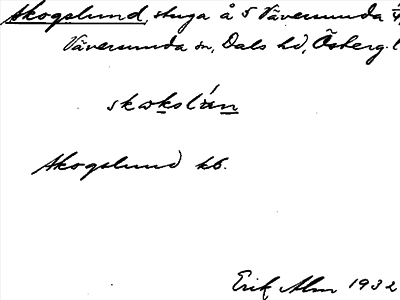 Skogslund, stuga å 5 Väversunda 1/4,
Väversunda sn, Dals hd, Österg. l
skωkslún
Skogslund kb.
Erik Alm 1932